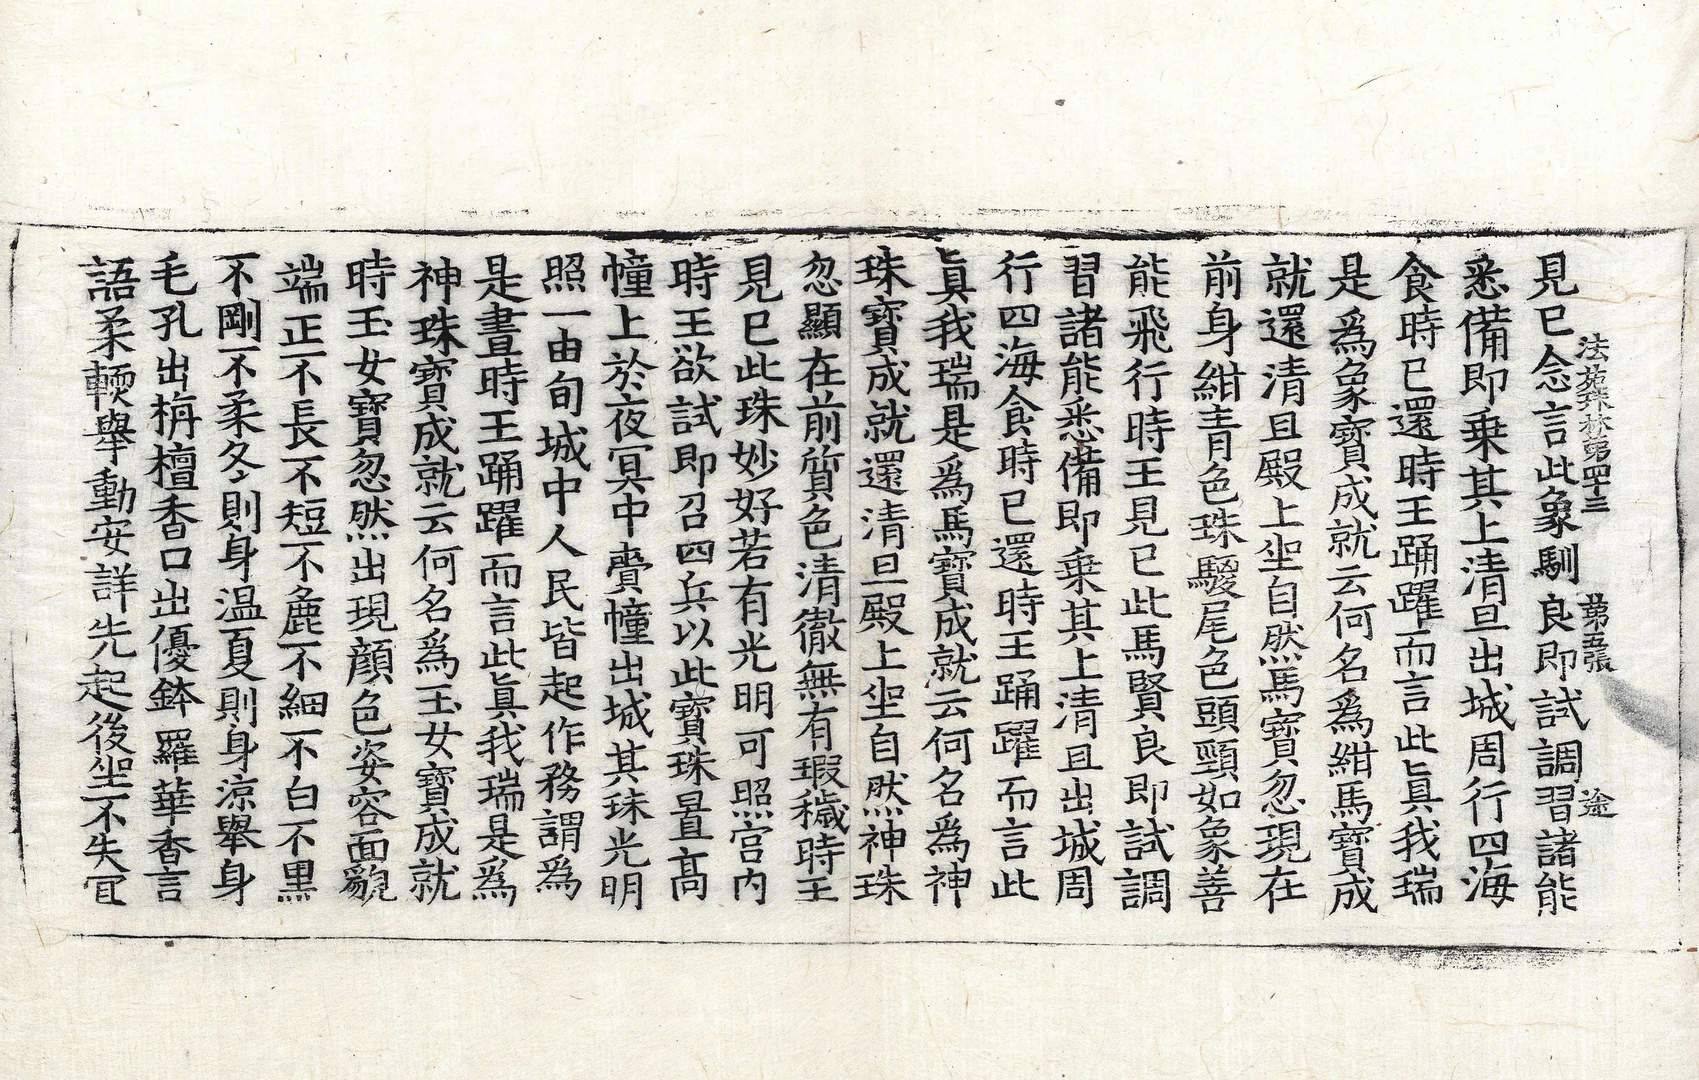 法苑珠林第四十三 第五張 途
見已念言此象馴良即試調習諸能
悉備即乗其上清旦出城周行四海
食時已還時王踊躍而言此眞我瑞
是爲象寶成就云何名爲紺馬寶成
就還清旦殿上坐自然馬寶忽現在
前身紺青色珠騣尾色頭頸如象善
能飛行時王見已此馬賢良即試調
習諸能悉備即乗其上清旦出城周
行四海食時已還時王踊躍而言此
眞我瑞是爲馬寶成就云何名爲神
珠寶成就還清旦殿上坐自然神珠
忽顯在前質色清徹無有瑕穢時王
見已此珠妙好若有光明可照宮内
時王欲試即召四兵以此寶珠置高
幢上於夜冥中賷幢出城其珠光明
照一由旬城中人民皆起作務謂爲
是晝時王踊躍而言此眞我瑞是爲
神珠寶成就云何名爲玉女寶成就
時玉女寶忽然出現顔色姿容面貌
端正不長不短不麁不細不白不黒
不剛不柔冬則身温夏則身涼舉身
毛孔出栴檀香口出優鉢羅華香言
語柔輭舉動安詳先起後坐不失冝